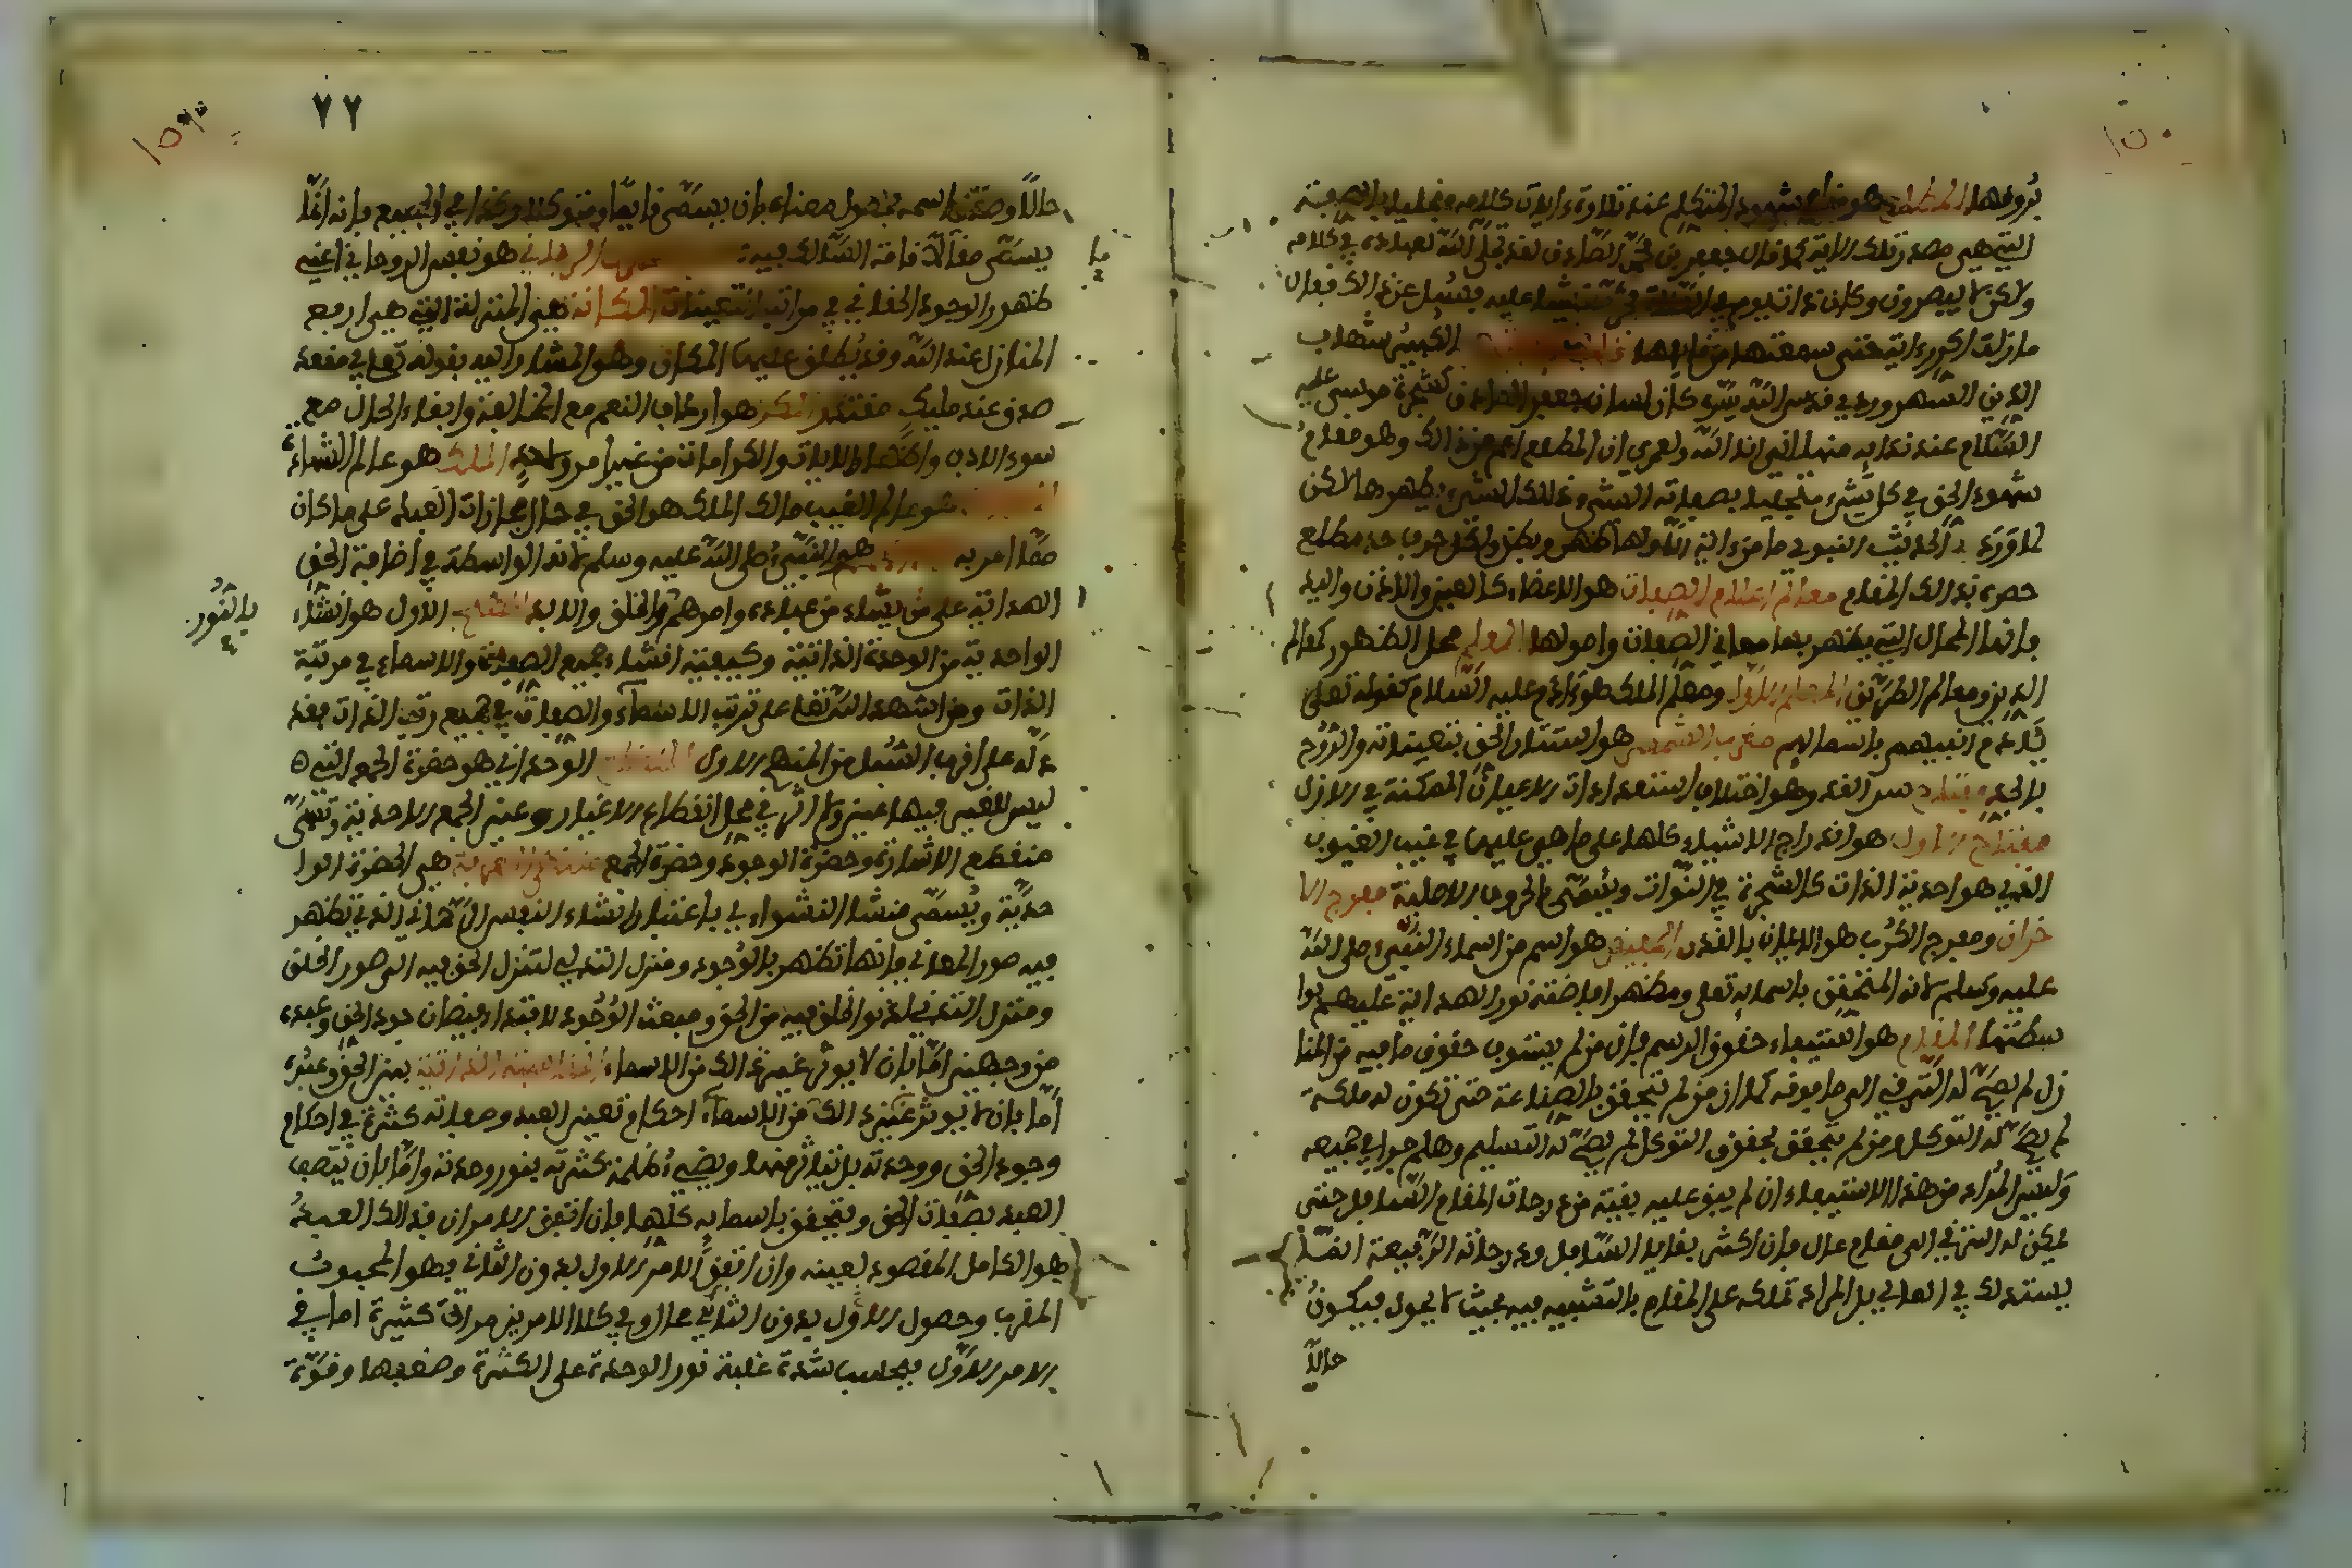 ١٥٠
بروفها المطلع هو مقام شهود المتكلم عند تلاوة ءايات كلامه متجليا بالصفة
التي هي مصدر تلك الاية كما قال جعفر بن محمد الصادق لقد تجلى الله لعباده في كلامه
ولاكن لا يبصرون وكان ذات يوم في الصلاة فخر مغشيا عليه فسئل عن ذالك فقال
ما زلت اكرر ءاية حتى سمعتها من قايلها الكبير شهاب
الدين السهروردي قدس الله سره كان لسان جعفر الصادق كشجرة موسى عليه
السلام عند ندايه منها اني انا الله ولعمري ان المطلع اعم من ذالك وهو مقام
شهود الحق في كل شيء متجليا بصفاته التي ذالك الشيء يظهرها لاكن
لما ورد الحديث النبوي ما من ءاية الا ولها ظهر وبطن ولكل حرف حد ومطلع
حصره بذالك المقام معالم اعلام الصفات هو الاعضاء كالعين والاذن واليد
فانها المحال التي يظهر بها معاني الصفات واصولها المعلم محل الظهور كمعالم
الدين ومعالم الطريق المعلم الاول ومعلم الملك هو ءادم عليه السلام كقوله تعلى
يئادم انبيهم باسمايهم مغرب الشمس هو استتار الحق بتعيناته والروح
بالجسد مفتاح سر القدر هو اختلاف استعدادات الاعيان الممكنة في الازل
مفتاح الاول هو اندراج الاشياء كلها على ما هي عليها في غيب الغيوب
الذي هو احدية الذات كالشجرة في النوات ويسمى بالحروف الاصلية مفرج الا
حزان ومفرج الكرب هو الايمان بالقدر المفيض هو اسم من اسماء النبي صلى الله
عليه وسلم لانه المتحقق باسمايه تعلى ومظهر افاضته نور الهداية عليهم بوا
سطتها المقام هو استيفاء حقوق الرسم فان من لم يستوف حقوق ما فيه من المنا
زل لم يصح له الترقي الى ما فوقه كما ان من لم يتحقق بالقناعة حتى تكون له ملكة
لم يصح له التوكل ومن لم يتحقق بحقوق التوكل لم يصح له التسليم وهلم جرا في جميعه
وليس المراد من هذا الاستيفاء ان لم يبق عليه بقية من درجات المقام السافل حتى
يمكن له الترقي الى مقام عال فان اكثر بقايا السافل ودرجاته الرفيعة انما
يستدرك في العالي بل المراد تملكه على المقام بالتثبيت فيه بحيث لا يحول فيكون
حالا
٧٢
حالا وصدق اسمه بحصول معناه بان يسمى قانعا ومتوكلا وكذا في الجميع فانه انما
يسمى مقاما لاقامة السالك فيه الرحماني هو نفس الروحاني اعني
ظهور الوجود الحقاني في مراتب التعينات المكانة هي المنزلة التي هي ارفع
المنازل عند الله وقد يطلق عليها المكان وهو المشار اليه بقوله تعلى في مقعد
صدق عند مليك مقتدر المكر هو ارداف النعم مع المخالفة وابقاء الحال مع
سوء الادب واظهار الايات والكرامات من غير امر ولا حد الملك هو عالم الشهادة
هو عالم الغيب مالك الملك هو الحق في حال مجازات العبد على ما كان
مما امر به هو النبي صلى الله عليه وسلم لانه الواسطة في افاضة الحق
الهداية على من يشاء من عباده وامدهم بالنور الاول هو انتشاء
بالنور
الواحدية من الوحدة الذاتية وكيفية انشاء جميع الصفات والاسماء في مرتبة
الذات ومن اشهده الله تعلى ترتب الاسماء والصفات في جميع رتب الذات فقد
دله على اقرب السبل من المنهج الاول المنقطع الوحداني هو حضرة الجمع التي
ليس للغير فيها عين ولا اثر فهي محل انقطاع الاغيار وعين الجمع الاحدية وتسمى
منقطع الاشارة وحضرة الوجود وحضرة الجمع هي الحضرة الوا
حدية ويسمى منشا السوى باعتبار انتشاء النفس الرحماني الذي تظهر
فيه صور المعاني فانها تظهر بالوجود ومنزل التدلي لتنزل الحق فيه الى صور الخلق
ومنزل التداني لدنو الخلق فيه من الحق ومبعث الجود لابتداء فيضان جود الحق وعبده
من وجهين اما بان لا يوثر فيه ذالك من الاسماء المناسبة الذاتية بين الحق وعبده
اما بان لا يوثر احكام تعين العبد وصفاته كثرته في احكام
وجوب الحق ووحدته بل يتاثر منها ويضيء ظلمة كثرته بنور وحدته واما بان يتصف
العبد بصفات الحق ويتحقق باسمايه كلها فان اتفق الامران فذالك العبد
هو الكامل المقصود لعينه وان اتفق الامر الاول بدون الثاني فهو المحبوب
المقرب وحصول الاول بدون الثاني محال وفي كلا الامرين مراتب كثيرة اما في
الامر الاول فبحسب شدة غلبة نور الوحدة على الكثرة وضعفها وقوة